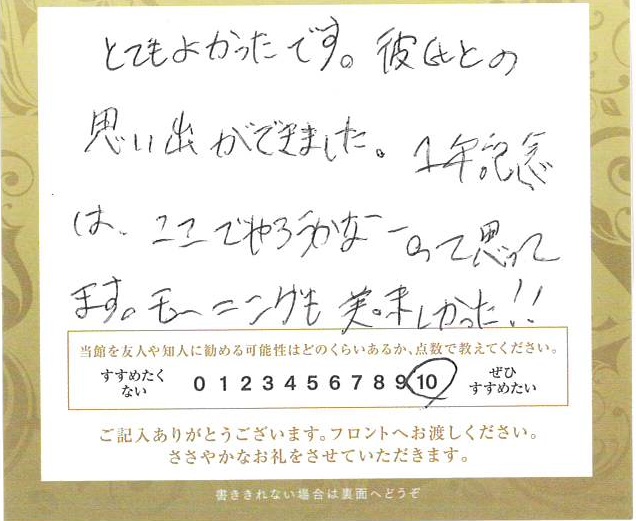 とてもよかったです。彼氏との
思い出ができました。1年記念
は、ここでやろうかなーって思って
ます。モーニングも美味しかった!!
当館を友人や知人に勧める可能性はどのくらいあるか、点数で教えてください。
すすめたく
ない
0 1 2 3 4 5 6 7 8 9 10
ぜひ
すすめたい
ご記入ありがとうございます。フロントへお渡しください。
ささやかなお礼をさせていただきます。
書ききれない場合は裏面へどうぞ